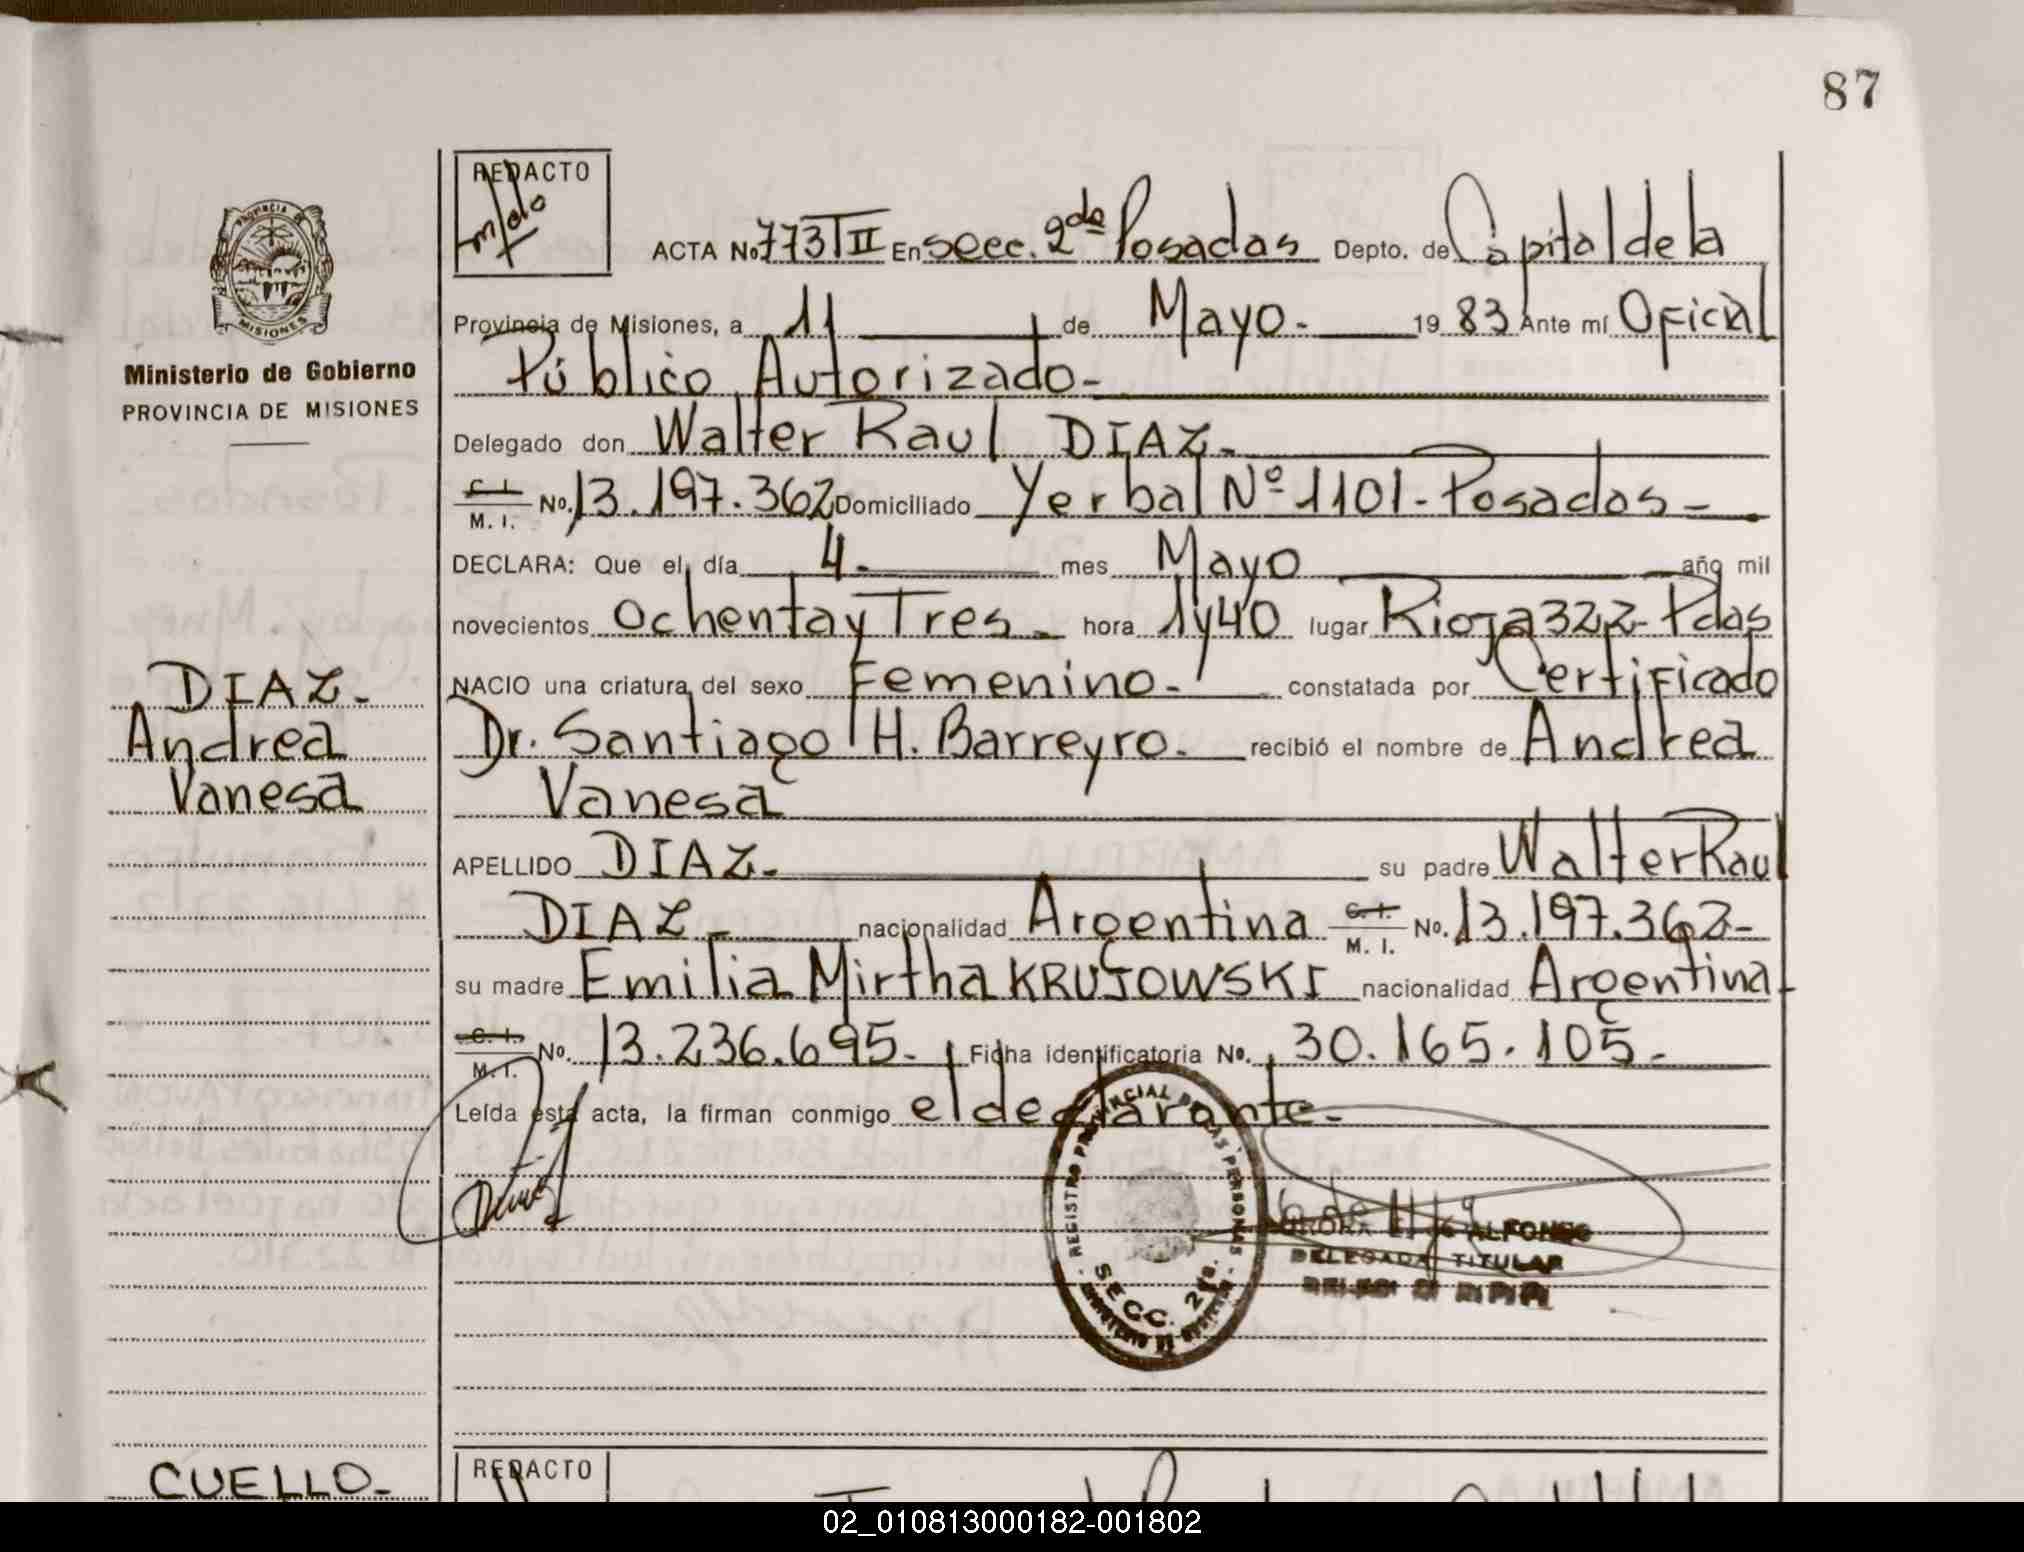 87
PROVINCIA DE
MISIONES
Ministerio de Gobierno
PROVINCIA DE MISIONES
REDACTO
ACTA No. 773 T II En secc. 2da Posadas Depto. de Capital de la
Provincia de Misiones, a 11 de Mayo - 19 83 Ante mí Oficial
Público Autorizado -
Delegado don Walter Raul DIAZ -
C. I. / M. I. No. 13.197.362 Domiciliado Yerbal Nº 1101 - Posadas -
DECLARA: Que el día 4 - mes Mayo año mil
novecientos Ochenta y Tres - hora 1 y 40 lugar Rioja 322 - Pdas
NACIO una criatura del sexo Femenino - constatada por Certificado
Dr. Santiago H. Barreyro - recibió el nombre de Andrea
Vanesa
APELLIDO DIAZ - su padre Walter Raul
DIAZ - nacionalidad Argentina C. I. / M. I. No. 13.197.362 -
su madre Emilia Mirtha KRUJOWSKI nacionalidad Argentina -
C. I. / M. I. No. 13.236.695 - Ficha identificatoria No. 30.165.105 -
Leída esta acta, la firman conmigo el declarante -
DIAZ -
Andrea
Vanesa
REGISTRO PROVINCIAL DE LAS PERSONAS
SECC. 2da.
ALFONSO
DELEGADA TITULAR
CUELLO -
REDACTO
02_010813000182-001802